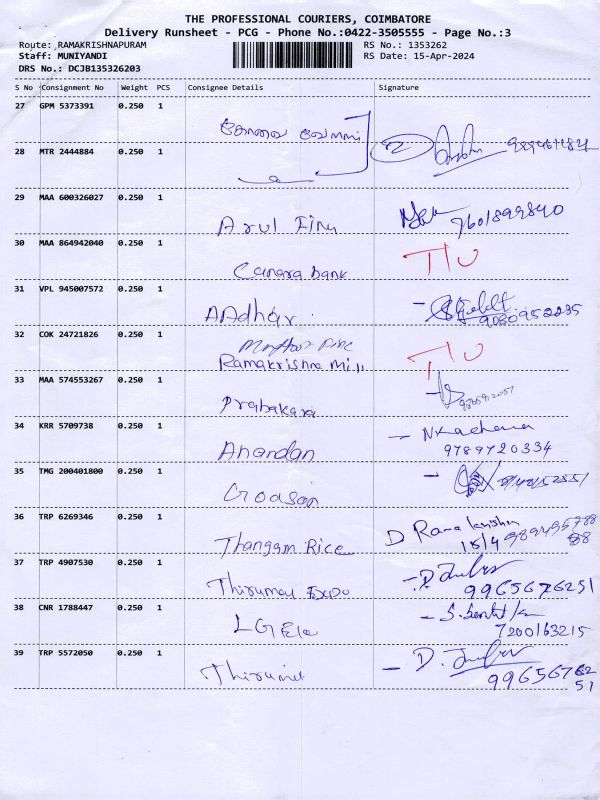 THE PROFESSIONAL COURIERS, COIMBATORE
Delivery Runsheet - PCG - Phone No.:0422-3505555 - Page No.:3
Route: RAMAKRISHNAPURAM RS No.: 1353262
Staff: MUNIYANDI RS Date: 15-Apr-2024
DRS No.: DCJB135326203
S No Consignment No Weight PCS Consignee Details Signature
27 GPM 5373391 0.250 1
28 MTR 2444884 0.250 1
29 MAA 600326027 0.250 1
Arul Finu 9601899840
30 MAA 864942040 0.250 1
Canara bank
31 VPL 945007572 0.250 1
AAdhar 9080952235
32 COK 24721826 0.250 1
Ramakrishna Mill
33 MAA 574553267 0.250 1
Prabakara
34 KRR 5709738 0.250 1
Anandan 9789720334
35 TMG 200401800 0.250 1
36 TRP 6269346 0.250 1
Thangam Rice 15/4
37 TRP 4907530 0.250 1
Thirumay Expo 9965676251
38 CNR 1788447 0.250 1
LG Ele 7200163215
39 TRP 5572050 0.250 1
99656762
51